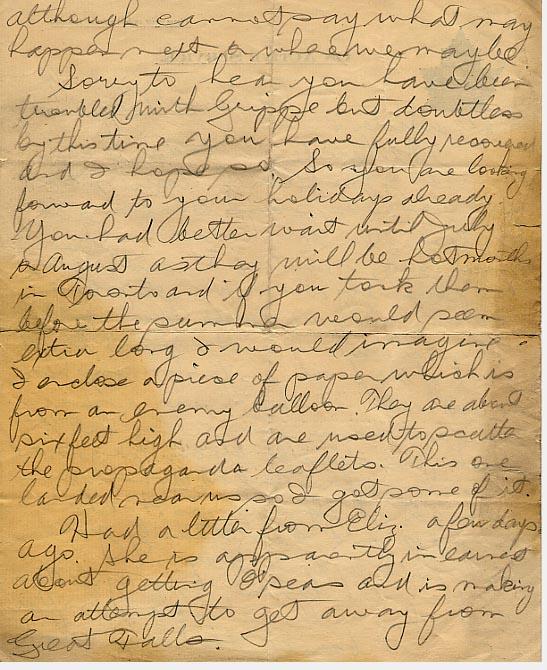 although cannot say what may
happen next or where we may be.
Sorry to hear you have been
troubled with Grippe but doubtless
by this time you have fully recovered
and I hope so. So you are looking
forward to your holidays already.
You had better wait until July
or August as they will be hot months
in Toronto and if you took them
before the summer would seem
extra long I would imagine.
I enclose a piece of paper which is
from an enemy balloon. They are about
six feet high and are used to scatter
the propaganda leaflets. This one
landed near us so I got some of it.
Had a letter from Eliz. a few days
ago. She is apparently in earnest
about getting and is making
an attempt to get away from
Great Falls.